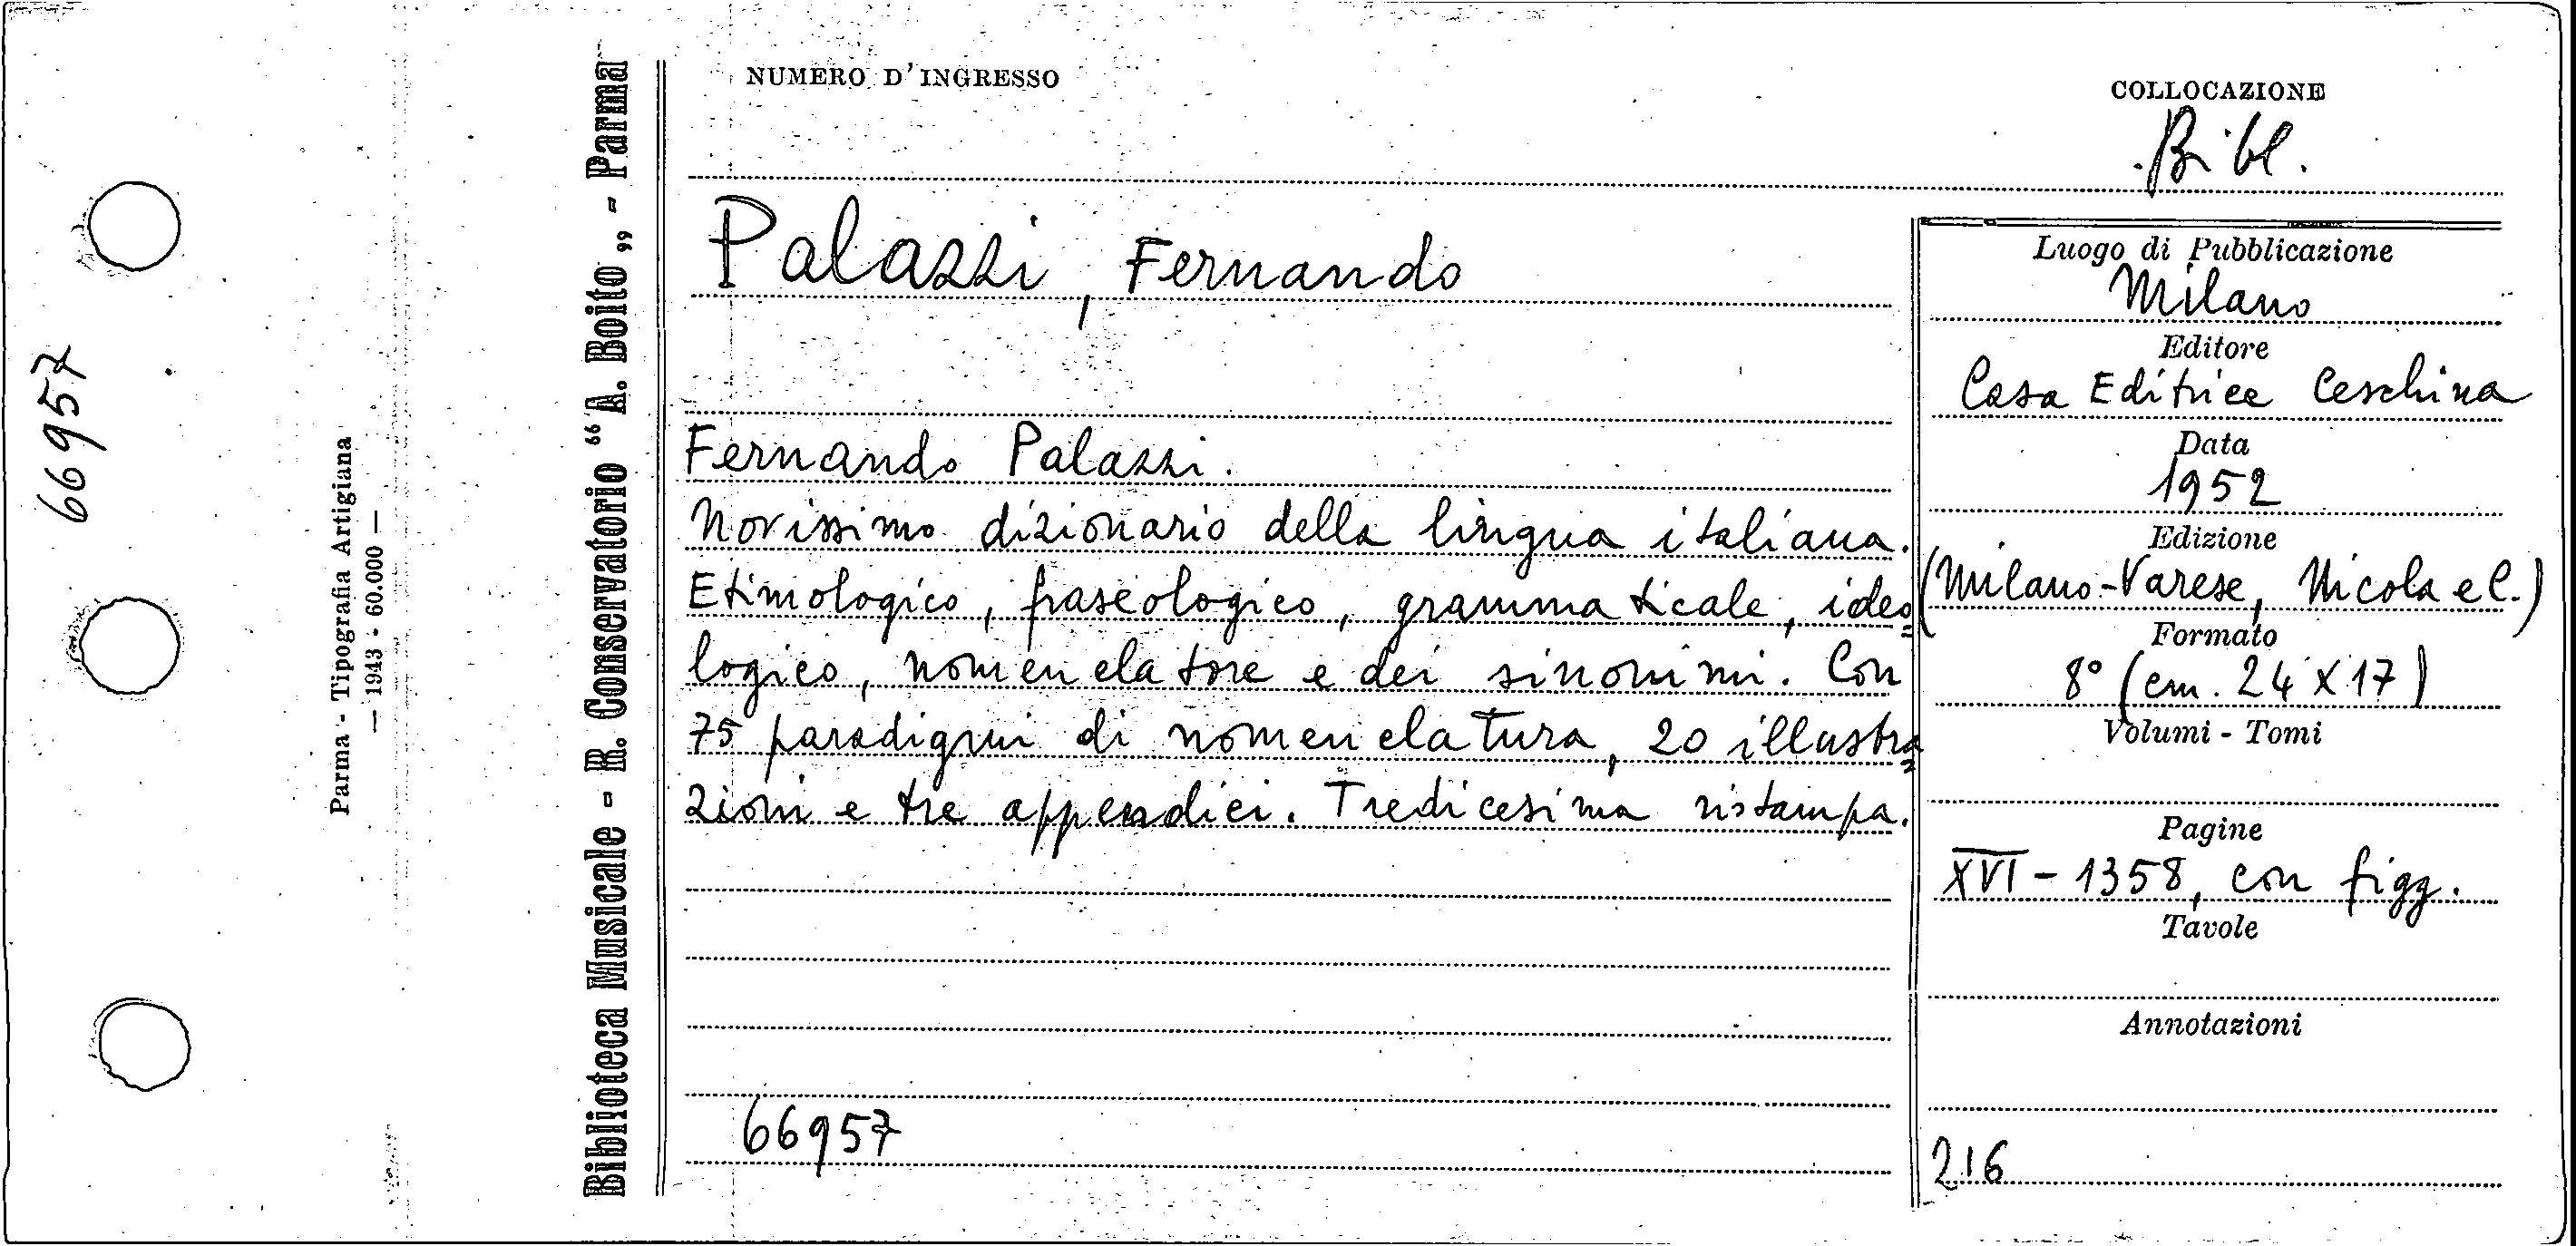 66957
Parma - Tipografia Artigiana
— 1943 - 60.000 —
Biblioteca Musicale - R. Conservatorio “A. Boito„ - Parma
NUMERO D'INGRESSO
COLLOCAZIONE
Bibl.
Palazzi, Fernando
Fernando Palazzi.
Novissimo dizionario della lingua italiana.
Etimologico, fraseologico, grammaticale, ideo=
logico, nomenclatore e dei sinonimi. Con
75 paradigmi di nomenclatura, 20 illustra=
zioni e tre appendici. Tredicesima ristampa.
66957
Luogo di Pubblicazione
Milano
Editore
Casa Editrice Ceschina
Data
1952
Edizione
(Milano-Varese, Nicola e C.)
Formato
8° (cm. 24 x 17)
Volumi - Tomi
Pagine
XVI - 1358, con figg.
Tavole
Annotazioni
216